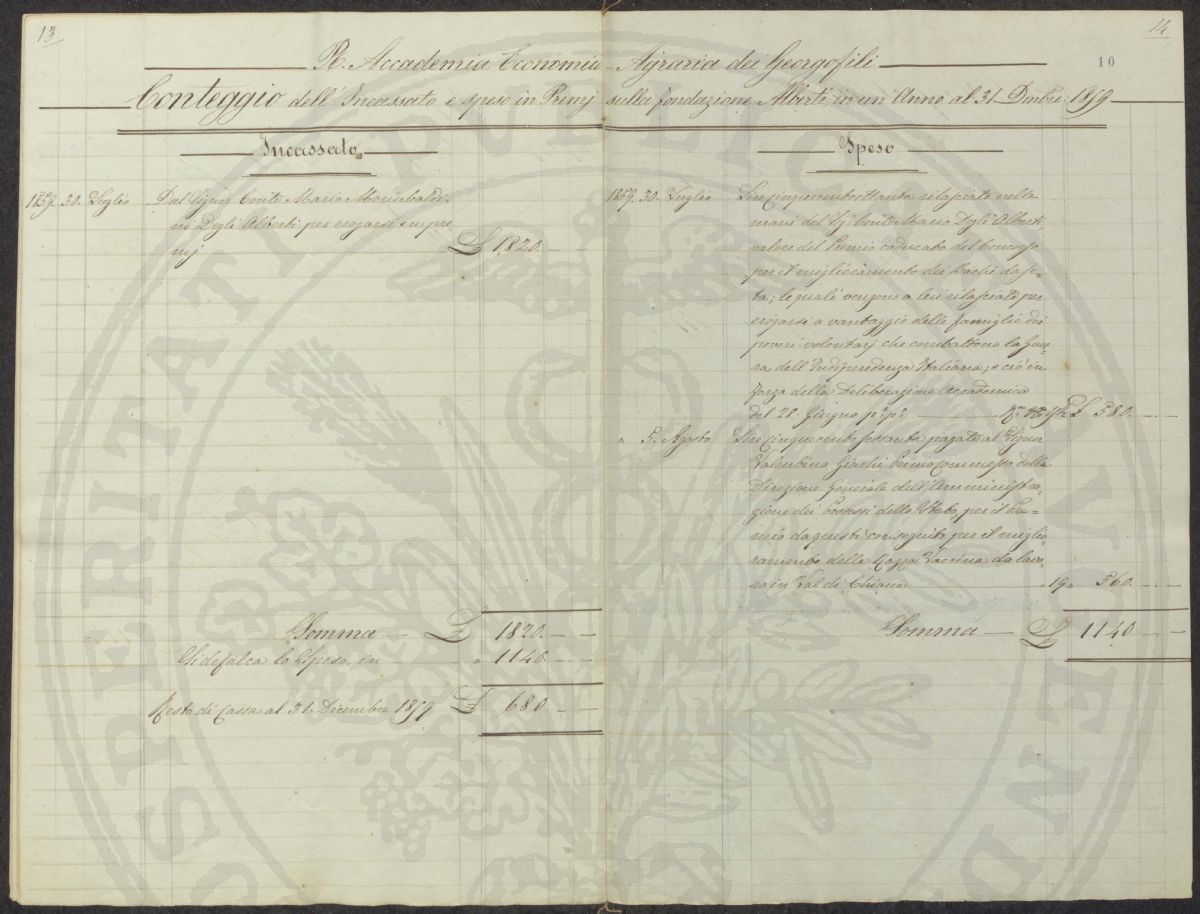 13
14
10
R. Accademia Economico-Agraria dei Georgofili
Conteggio dell'Incassato e speso in Premj sulla fondazione Alberti, in un'Anno al 31 Dmbre 1859
Incassato
1859. 30. Luglio Dal Signor Conte Mario Moriubaldi-
ni Degli Alberti per erogarsi in pre
mj £ 1820. - -
Somma £ 1820. - -
Si defalca lo Speso, in " 1140. - -
Resto di Cassa al 31. Dicembre 1859 £ 680. - -
Speso
1859. 30. Luglio Lire cinquecentottanta rilasciate nelle
mani del Sig: Conte Mario Degli Alberti,
valore del Premio caducato del Concorso
per il miglioramento dei Bachi da se-
ta; le quali vengono a lui rilasciate per
erogarsi a vantaggio delle famiglie dei
poveri volontarj che combattono la Guer-
ra dell'Indipendenza Italiana, e ciò in
forza della Deliberazione Accademica
del 28. Giugno p:° p:° £ 580. - -
" 5. Agosto Lire Cinquecento sessanta pagate al Signor
Valentino Giachi Primo Commesso della
Direzione Generale dell'Amministra-
zione dei Possessi dello Stato, per il Pre-
mio da questi conseguito per il miglio-
ramento della Razza Vaccina da lavo-
ro in Val di Chiana 19 " 560. - -
Somma £ 1140 - -